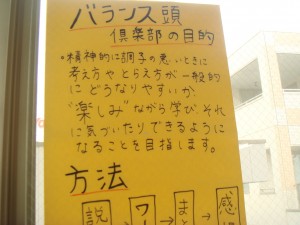 バランス頭
倶楽部の目的
・精神的に調子の悪いときに
考え方やとらえ方が一般的
にどうなりやすいか
"楽しみ"ながら学び それ
に気づいたりできるように
なることを目指します。
方法
説 → ワー → まと → 感